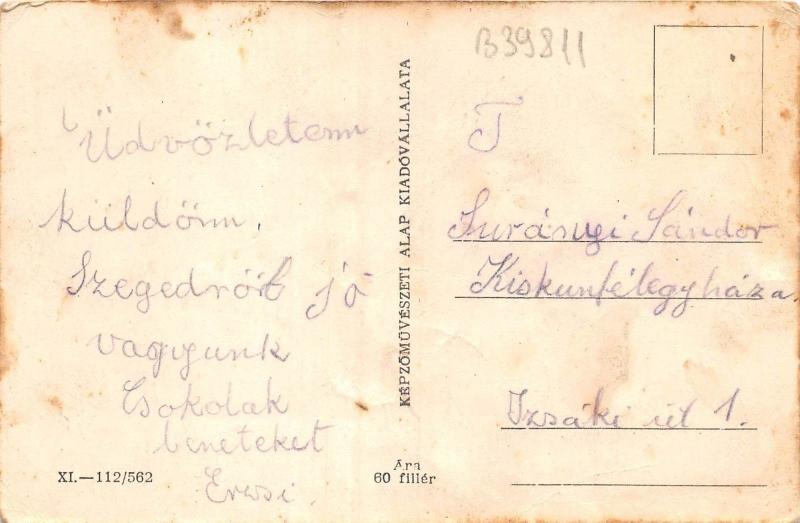 Üdvözletemi
küldöm.
Szegedről jó
vagyunk
Csokolak
beneteket
Erzsi.
XI.—112/562
KÉPZŐMŰVÉSZETI ALAP KIADÓVÁLLALATA
Ára
60 fillér
B39811
T
Surányi Sándor
Kiskunfélegyháza.
Izsáki út 1.